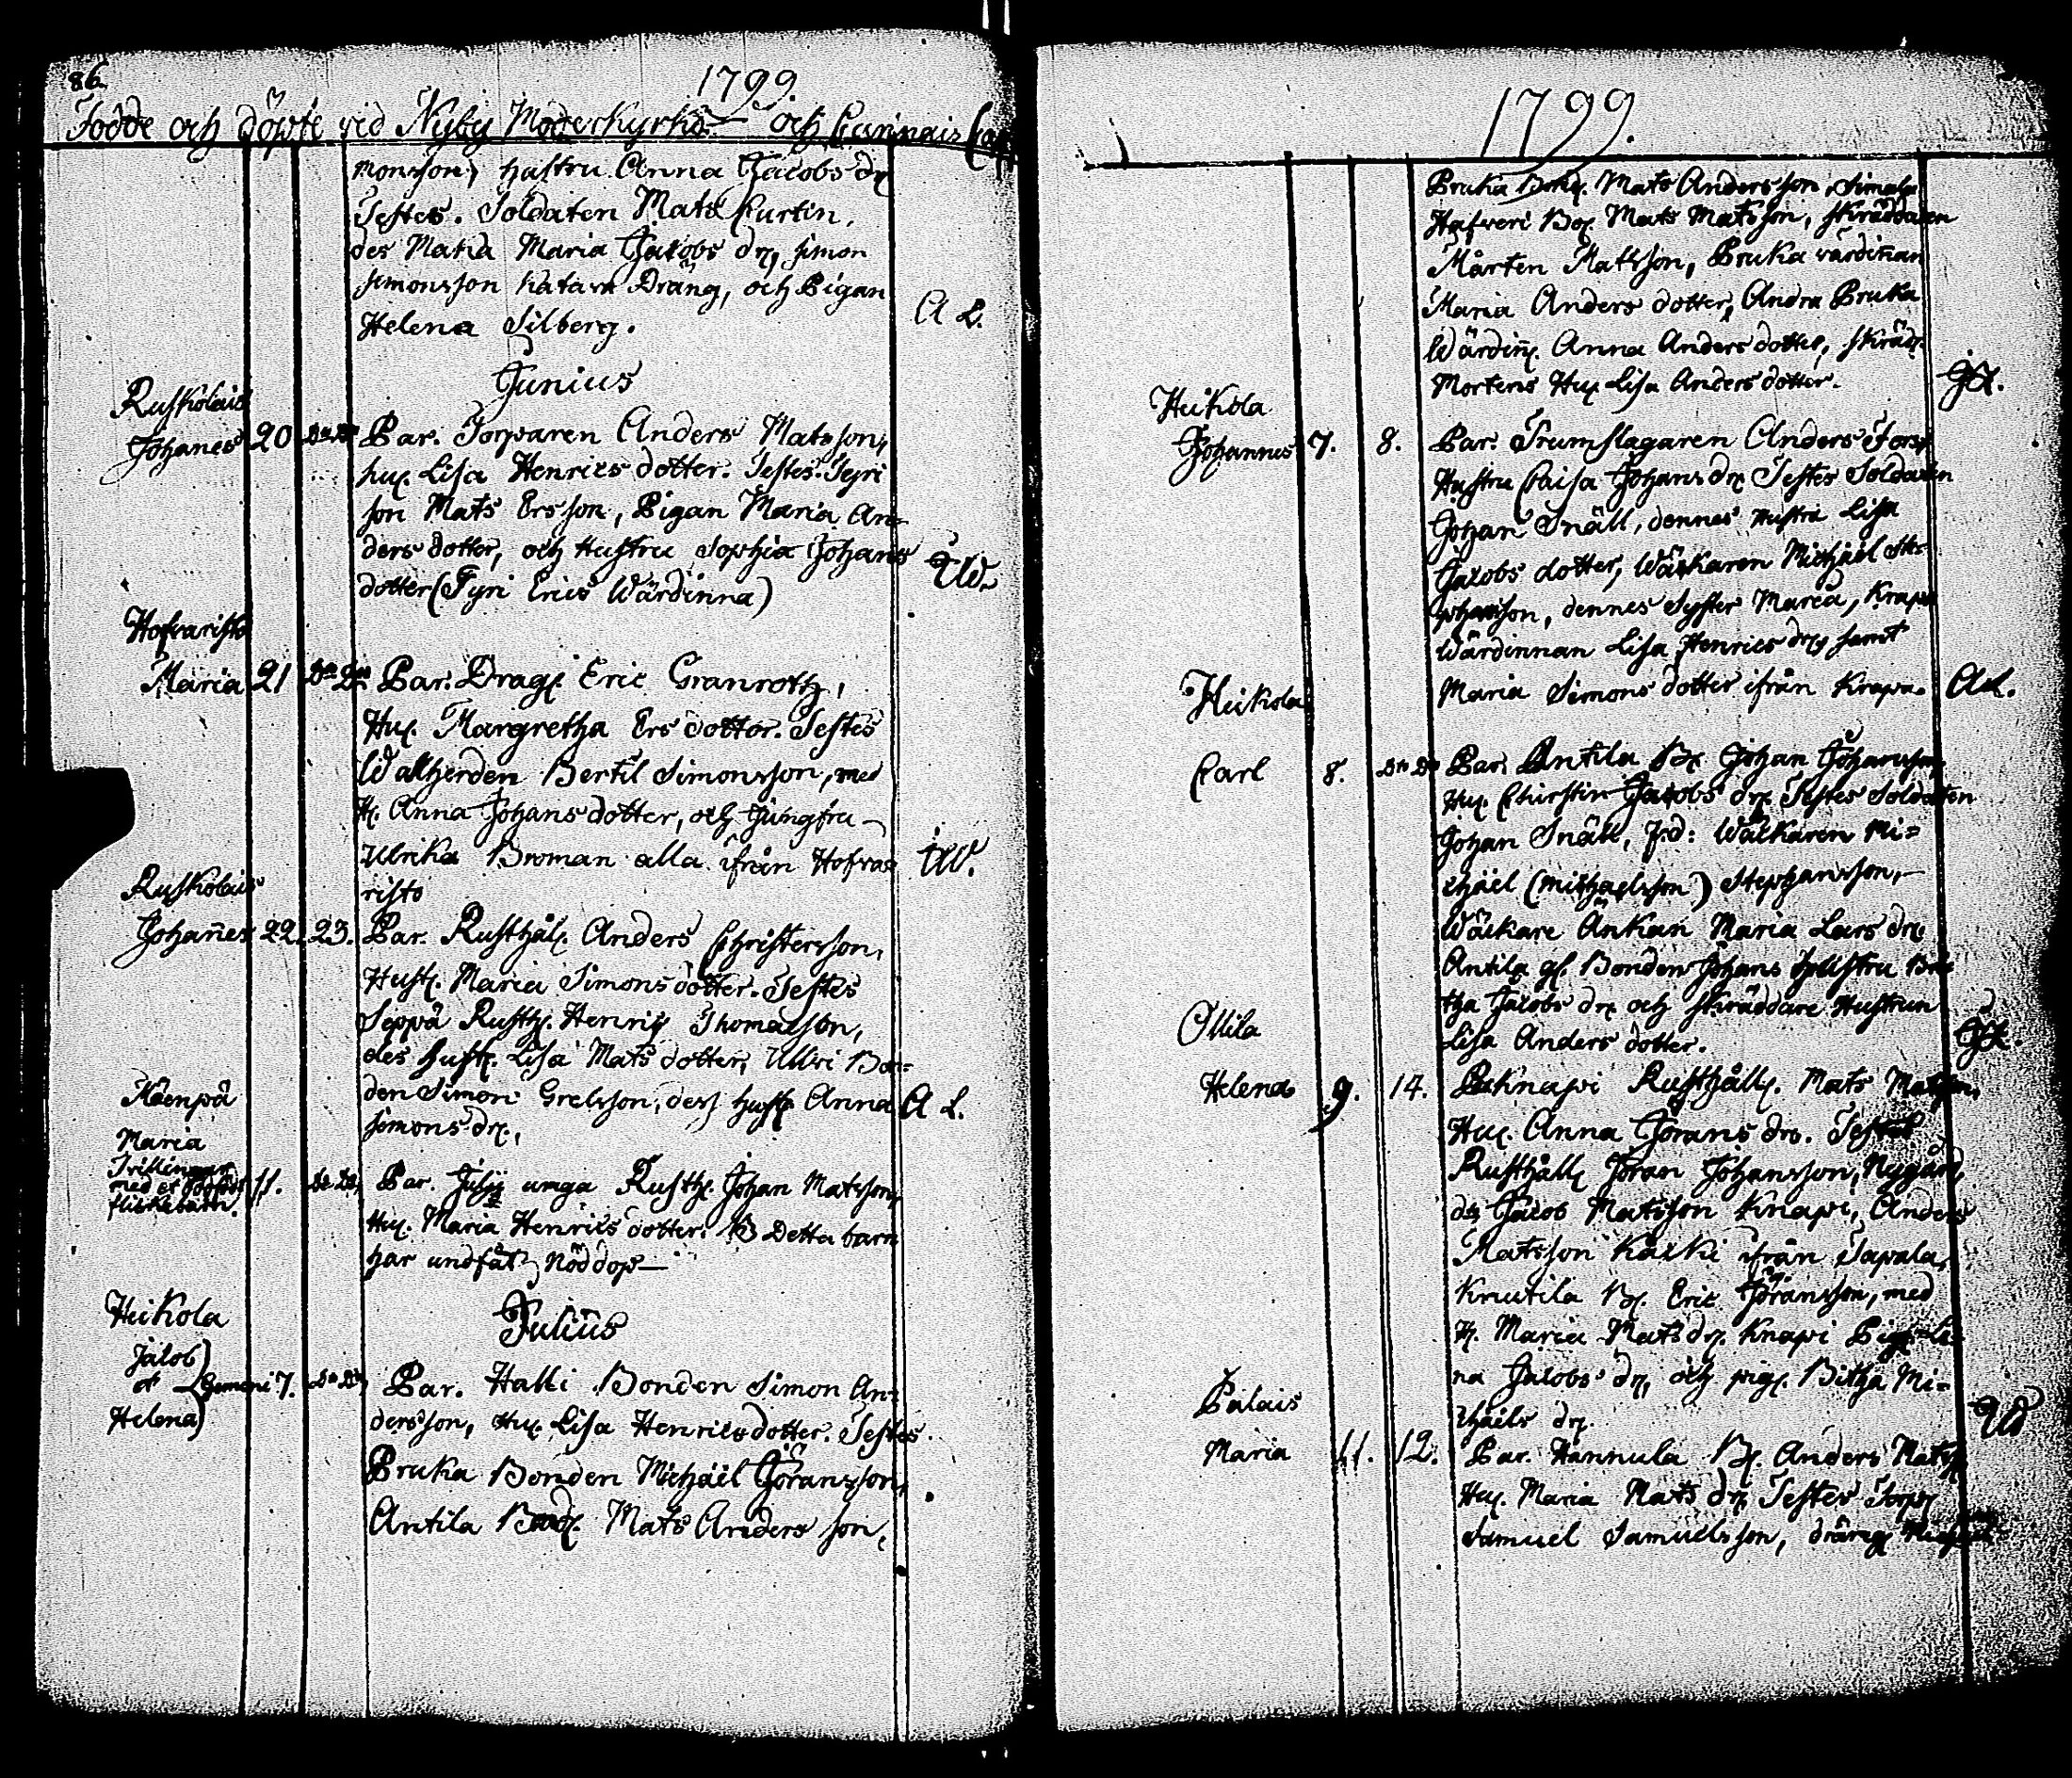 86.
1799.
Födde och döpte vid Nyby Moderkyrka och Cumnais Cap
monsson, hustru Anna Jacobs dr
Testes. Soldaten Mats Kurtin,
des Maka Maria Jacobs dr, Simon
Simonsson Dräng, och Pigan
Helena Silberg.
A L.
Junius
Ruskolais
Johanes 20 Dn Dn Par. Torparen Anders Matsson,
hu. Lisa Henrics dotter. Testes. Tyri
son Mats Ersson, Pigan Maria An=
ders dotter, och Hustru Sophia Johans
dotter (Tyri Erics Wärdinna)
Hofvaristo
Maria 21 Dn Dn Par. Drag. Eric Granroth,
Hu. Margretha Ers dotter. Testes
Wallherden Bertil Simonsson, med
H. Anna Johans dotter, och Jungfru
Ulrika Broman alla ifrån Hofva=
risto
Ruskolais
Johañes 22. 23. Par. Rusthål. Anders Christersson,
Hust. Maria Simons dotter. Testes
Seppä Rusth. Henric Thomasson,
des hust. Lisa Mats dotter, Ullri Bon=
den Simon Grelsson, dess hust. Anna
Simons dr.
A L.
Käenpä
Maria
Trillingar
med et
flickebarn 11. Dn Dn Par. unga Rusth. Johan Matsson,
Hu. Maria Henrics dotter. NB Detta barn
har undfåt Nöddop—
Julius
Heikola
Jacob
et Gemeni 7. Dn Dn
Helena
Par. Halli Bonden Simon An=
dersson, Hu. Lisa Henricsdotter. Testes
Pruka Bonden Michäel Göransson,
Antila Bond. Mats Andersson,
1799.
Pruka Bond. Mats Andersson, Simola
Hafveri Bo. Mats Matsson, skräddaren
Mårten Matsson, Pruka värdiñan
Maria Anders dotter, Andra Pruka
Wärdiñ. Anna Anders dotter, skräd.
Mortens Hu. Lisa Anders dotter.
Heikola
Johannes 7. 8. Par. Trumslagaren Anders Fors,
Hustru Caisa Johans dr. Testes Soldaten
Johan Snäll, dennes Hustru Lisa
Jacobs dotter, Wäckaren Michäel Ste=
phansson, dennes Syster Maria, Krapu
Wärdinnan Lisa Henrics dr, samt
Maria Simons dotter ifrån Krapu.
A L.
Heikola
Carl 8. Dn Dn Par. Antila B. Johan Johansson,
Hu. Christin Jacobs dr. Testes Soldaten
Johan Snäll, f.d: Wäckaren Mi=
chäel (Michaelsson) Stephansson,
Wäckare Änkan Maria Lars dr.
Antila gl. Bonden Johans Hustru Bri=
tha Jacobs dr. och skräddare Hustrun
Lisa Anders dotter.
Ollila
Helena 9. 14. Par. Knapi Rusthåll. Mats Matsson,
Hu. Anna Jörans dr. Testes
Rusthåll. Jöran Johansson, Nygård,
d. Jacob Matsson Knapi, Anders
Matsson Kälki ifrån Sapala,
Knutila B. Eric Jöransson, med
H. Maria Mats dr. Knapi Pig. Le=
na Jacobs dr, och pig. Britha Mi=
chaels dr.
Palais
Maria 11. 12. Par. Hannula B. Anders Mats
Hu. Maria Mats dr. Testes Torp.
Samuel Samuelsson, dräng